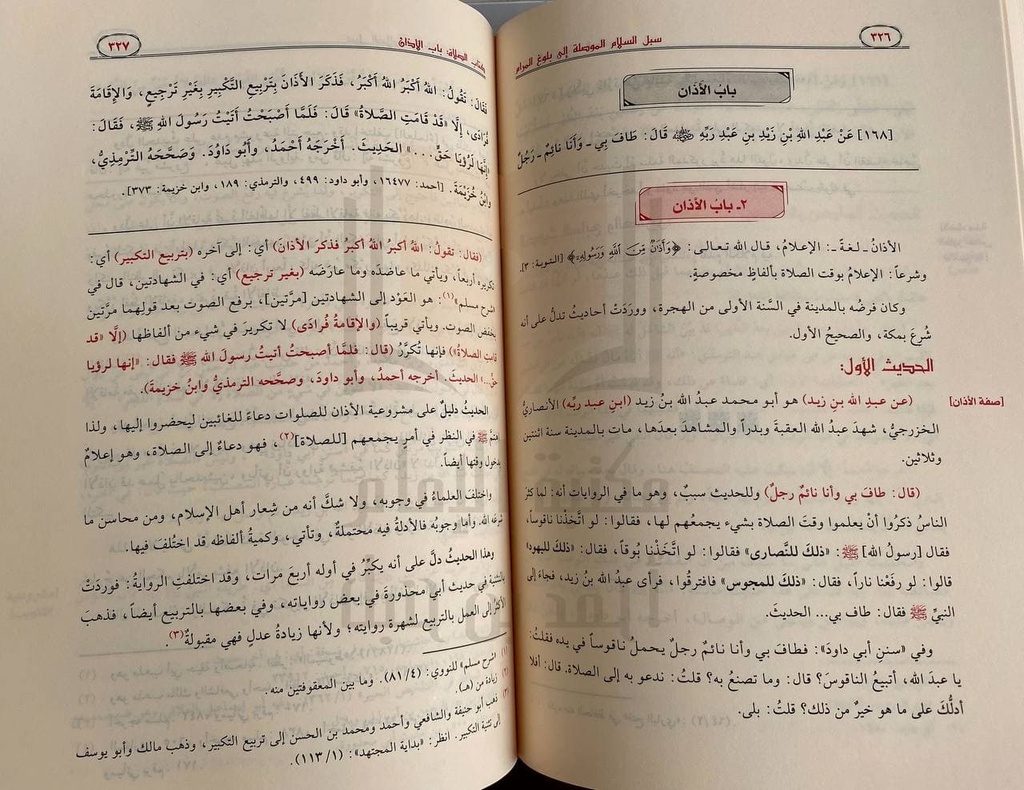 ٣٢٦
سبل السلام الموصلة إلى بلوغ المرام
بابُ الأَذان
[١٦٨] عَنْ عَبْدِ اللهِ بْنِ زَيْدِ بْنِ عَبْدِ رَبِّهِ ﷺ قَالَ: طَافَ بِي ـ وَأَنَا نَائِمٌ ـ رَجُلٌ
٢ـ بابُ الأذان
الأذانُ ـ لغةً ـ: الإعلامُ، قال الله تعالى: ﴿وَأَذَٰنٌ مِّنَ ٱللَّهِ وَرَسُولِهِۦ﴾ [التوبة: ٣].
وشرعاً: الإعلامُ بوقت الصلاة بألفاظٍ مخصوصةٍ.
وكان فرضُه بالمدينة في السَّنة الأولى من الهجرة، ووردَتْ أحاديثُ تدلُّ على أنه
شُرعَ بمكة، والصحيحُ الأول.
الحديث الأول:
[صفة الأذان]
(عن عبدِ الله بنِ زيد) هو أبو محمد عبدُ الله بنُ زيد (ابنِ عبد ربِّه) الأنصاريُّ
الخزرجيُّ، شهدَ عبدُ الله العقبةَ وبدراً والمشاهدَ بعدَها، مات بالمدينة سنة اثنتين
وثلاثين.
(قال: طاف بي وأنا نائمٌ رجلٌ) وللحديث سببٌ، وهو ما في الروايات أنه: لما كثرَ
الناسُ ذكرُوا أنْ يعلموا وقتَ الصلاة بشيء يجمعُهم لها، فقالوا: لو اتَّخذْنا ناقوساً،
فقال [رسولُ الله] ﷺ: «ذلكَ للنَّصارى» فقالوا: لو اتَّخَذْنا بُوقاً، فقال: «ذلكَ لليهودِ»
قالوا: لو رفَعْنا ناراً، فقال: «ذلكَ للمجوس» فافترقُوا، فرأى عبدُ الله بنُ زيد، فجاءَ إلى
النبيِّ ﷺ فقال: طاف بي... الحديثَ.
وفي «سننِ أبي داودَ»: فطافَ بي وأنا نائمٌ رجلٌ يحملُ ناقوساً في يده فقلتُ:
يا عبدَ الله، أتبيعُ الناقوسَ؟ قال: وما تصنعُ به؟ قلتُ: ندعو به إلى الصلاة. قال: أفلا
أدلُّكَ على ما هو خيرٌ من ذلك؟ قلتُ: بلى.
كتاب الصلاة: باب الأذان
٣٢٧
فَقَالَ: تَقُولُ: اللهُ أَكْبَرُ اللهُ أَكْبَرُ، فَذَكَرَ الأَذَانَ بِتَرْبِيعِ التَّكْبِيرِ بِغَيْرِ تَرْجِيعٍ، وَالإِقَامَةَ
فُرَادَى، إِلَّا «قَدْ قَامَتِ الصَّلاةُ» قَالَ: فَلَمَّا أَصْبَحْتُ أَتَيْتُ رَسُولَ اللهِ ﷺ، فَقَالَ:
«إِنَّهَا لَرُؤْيَا حَقٌّ...» الْحَدِيثَ. أَخْرَجَهُ أَحْمَدُ، وَأَبُو دَاوُدَ. وَصَحَّحَهُ التِّرْمِذِيُّ،
وَابْنُ خُزَيْمَةَ. [أحمد: ١٦٤٧٧، وأبو داود: ٤٩٩، والترمذي: ١٨٩، وابن خزيمة: ٣٧٣].
(فقال: تقولُ: اللهُ أكبرُ اللهُ أكبرُ فذكر الأذانَ) أي: إلى آخره (بتربيع التكبير) أي:
تكريره أربعاً، ويأتي ما عاضدَه وما عارضَه (بغير ترجيع) أي: في الشهادتين، قال في
«شرح مسلم»(١): هو العَوْد إلى الشهادتين [مرَّتين]، برفع الصوت بعد قولهما مرَّتين
بخفض الصوت. ويأتي قريباً (والإقامةَ فُرادَى) لا تكريرَ في شيء من ألفاظها (إلَّا «قد
قامتِ الصلاةُ») فإنها تُكرَّرُ (قال: فلمَّا أصبحتُ أتيتُ رسولَ الله ﷺ فقال: «إنها لرؤيا
حقٌّ...» الحديثَ. أخرجه أحمدُ، وأبو داودَ، وصحَّحه الترمذيُّ وابنُ خزيمةَ).
الحديثُ دليلٌ على مشروعية الأذان للصلوات دعاءً للغائبين ليحضروا إليها، ولذا
اهتمَّ ﷺ في النظر في أمرٍ يجمعهم [للصلاة](٢)، فهو دعاءٌ إلى الصلاة، وهو إعلامٌ
بدخول وقتها أيضاً.
واختلفَ العلماءُ في وجوبه، ولا شكَّ أنه من شِعارِ أهل الإسلام، ومن محاسن ما
شرعَه الله. وأما وجوبُه فالأدلةُ فيه محتملةٌ، وتأتي، وكميةُ ألفاظه قد اختُلفَ فيها.
وهذا الحديثُ دلَّ على أنه يكبِّرُ في أوله أربعَ مرات، وقد اختلفتِ الروايةُ: فوردَتْ
بالتثنية في حديث أبي محذورةَ في بعض رواياته، وفي بعضها بالتربيع أيضاً، فذهبَ
الأكثرُ إلى العمل بالتربيع لشهرة روايته؛ ولأنها زيادةُ عدلٍ فهي مقبولةٌ(٣).
(١) «شرح مسلم» للنووي: (٨١/٤). وما بين المعقوفتين منه.
(٢) زيادة من (هـ).
(٣) ذهب أبو حنيفة والشافعي وأحمد ومحمد بن الحسن إلى تربيع التكبير، وذهب مالك وأبو يوسف
إلى تثنية التكبير. انظر: «بداية المجتهد»: (١١٣/١).